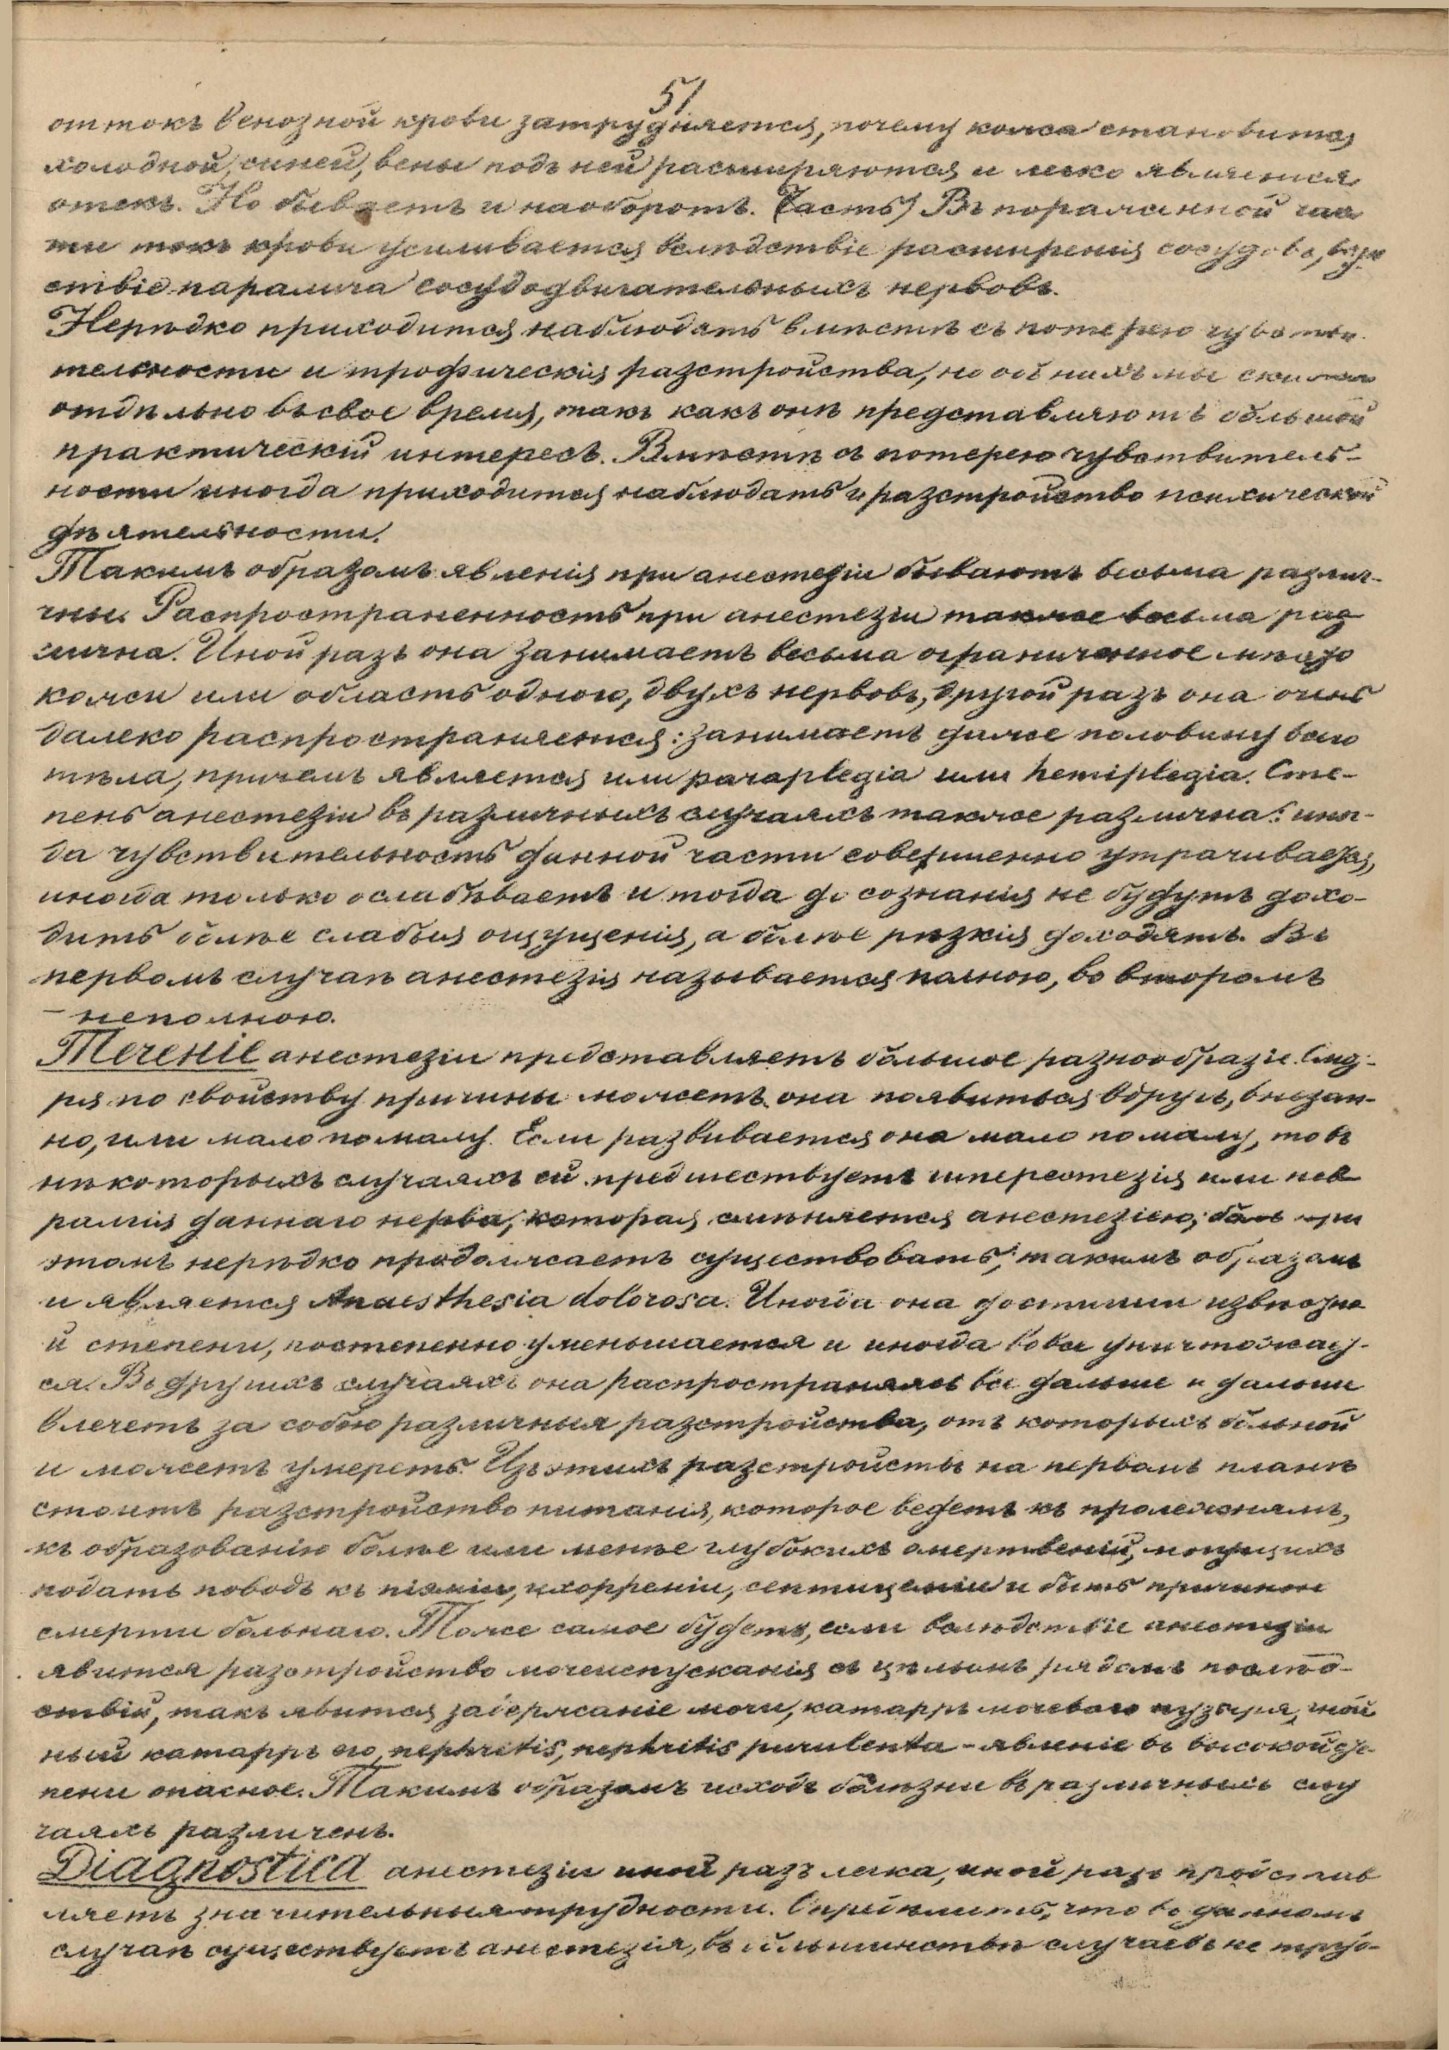 51
оттокъ венозной крови затрудняется, почему кожа становится
холодной, синей, вены подъ ней расширяются и легко является
отекъ. Но бываетъ и наоборотъ. (часть) Въ пораженной час
ти токъ крови усиливается вслѣдствіе расширенія сосудовъ,
ствіе паралича сосудодвигательныхъ нервовъ.
Нерѣдко приходится наблюдать вмѣстѣ съ потерею чувстви
тельности и трофическія разстройства, но объ нихъ мы скажемъ
отдѣльно въ свое время, такъ какъ онѣ представляютъ большой
практическій интересъ. Вмѣстѣ съ потерею чувствитель-
ности иногда приходится наблюдать и разстройство психической
дѣятельности.
Такимъ образомъ явленія при анестезіи бываютъ весьма разли-
чны. Распространенность при анестезіи также весьма раз
лична. Иной разъ она занимаетъ весьма ограниченное мѣсто
кожи или область одного, двухъ нервовъ, другой разъ она очень
далеко распространяется: занимаетъ даже половину всего
тѣла, причемъ является или paraplegia или hemiplegia. Сте-
пень анестезіи въ различныхъ случаяхъ также различна: иног-
да чувствительность данной части совершенно утрачивается,
иногда только ослабѣваетъ и тогда до сознанія не будутъ дохо-
дить болѣе слабыя ощущенія, а болѣе рѣзкія доходятъ. Въ
первомъ случаѣ анестезія называется полною, во второмъ
– неполною.
Теченіе анестезіи представляетъ большое разнообразіе. Смот-
ря по свойству причины можетъ она появиться вдругъ, внезап-
но, или мало по малу. Если развивается она мало по малу, то въ
нѣкоторыхъ случаяхъ ей предшествуетъ гиперестезія или нев
ралгія даннаго нерва, которая смѣняется анестезіею; боль при
этомъ нерѣдко продолжаетъ существовать; такимъ образомъ
и является Anaesthesia dolorosa. Иногда она достигши извѣстно
й степени, постепенно уменьшается и иногда вовсе уничтожает-
ся. Въ другихъ случаяхъ она распространяясь все дальше и дальше
влечетъ за собою различныя разстройства, отъ которыхъ больной
и можетъ умереть. Изъ этихъ разстройствъ на первомъ планѣ
стоитъ разстройство питанія, которое ведетъ къ пролежнямъ,
къ образованію болѣе или менѣе глубокихъ омертвеній, могущихъ
подать поводъ къ піэміи, ихорреміи, септицеміи и быть причиною
смерти больнаго. Тоже самое будетъ, если вслѣдствіе анестезіи
явится разстройство мочеиспусканія съ цѣлымъ рядомъ послѣд-
ствій, такъ явится задержаніе мочи, катарръ мочеваго пузыря, гной
ный катарръ его, nephritis, nephritis purulenta – явленіе въ высокой сте
пени опасное. Такимъ образомъ исходъ болѣзни въ различныхъ слу
чаяхъ различенъ.
Diagnostica анестезіи иной разъ легка, иной разъ представ
ляетъ значительныя трудности. Опредѣлить, что въ данномъ
случаѣ существуетъ анестезія, въ большинствѣ случаевъ не труд-